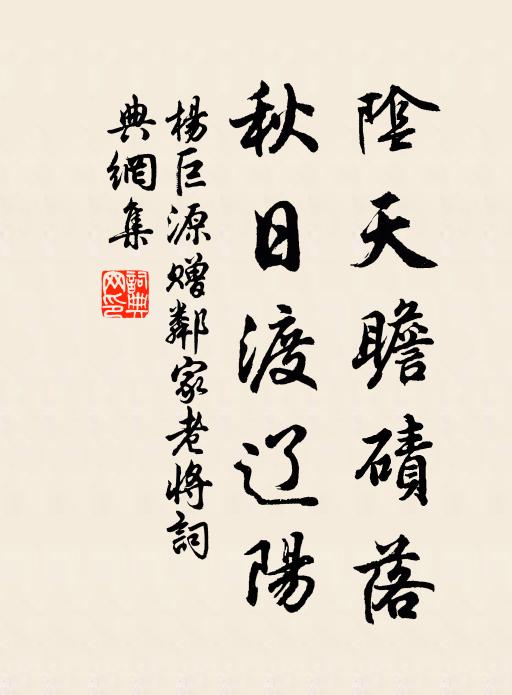 陰天瞻磧落
秋日渡辽陽
楊巨源赠鄰家老將詞
典網集
詞典網印